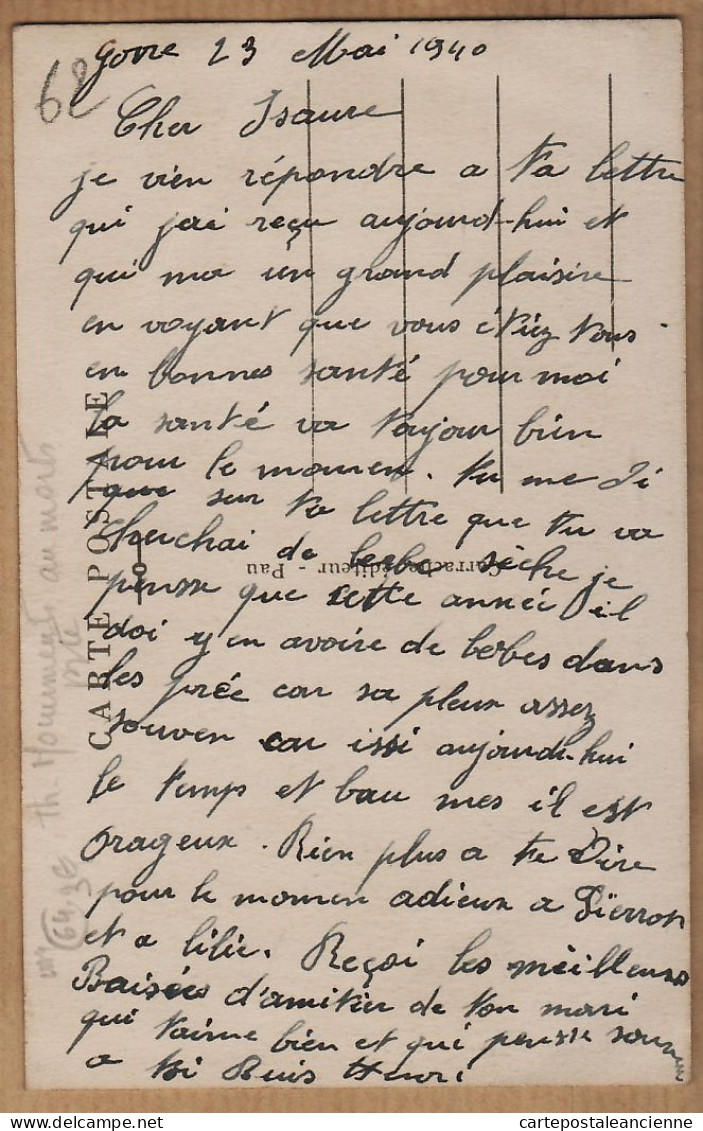 Gorre 23 Mai 1940
62
Cher Isaure
je vien répondre a ta lettre
qui jai reçu aujourd-hui et
qui ma un grand plaisire
en voyant que vous étiéz tous
en bonnes santé pour moi
la santé va toujour bien
pour le momen. tu me di
que sur ta lettre que tu va
cherchai de lerbe sèche je
pensse que cette année il
doi y en avoire de lerbes dans
les prée car sa pleux assez
souven car issi aujourd-hui
le temps et bau mes il est
orageux. Rien plus a te Dire
pour le momen adieux a Pierrot
et a lilie. Reçoi les méilleures
Baisées d'amitier de ton mari
qui taime bien et qui pensse souven
a toi Henri
CARTE POSTALE
Carrache éditeur - Pau
Th. Monuments au morts
64.3€
delcampe.net
cartepostaleancienne